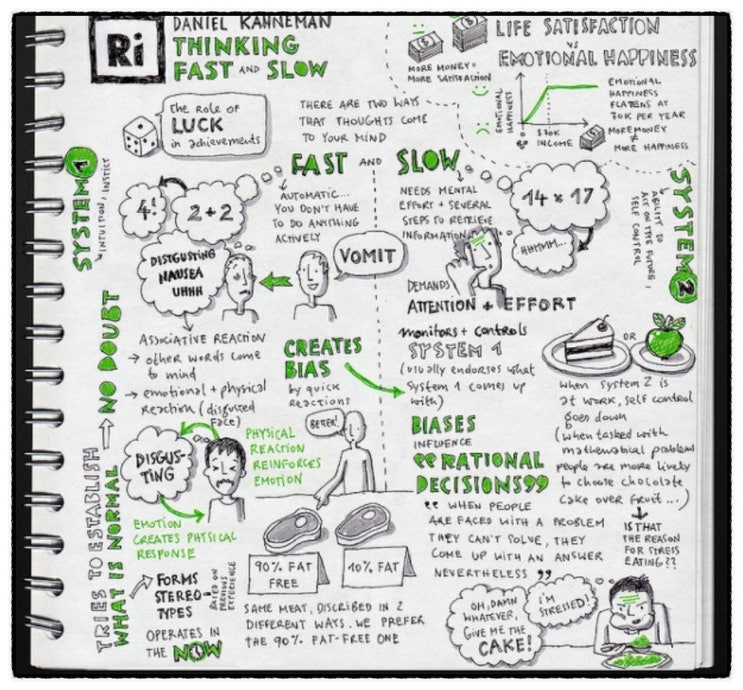 Ri
DANIEL KAHNEMAN
THINKING
FAST AND SLOW
MORE MONEY =
MORE SATISFACTION
LIFE SATISFACTION
VS
EMOTIONAL HAPPINESS
EMOTIONAL
HAPPINESS
INCOME
EMOTIONAL
HAPPINESS
FLATENS AT
70K PER YEAR
MORE MONEY
≠
MORE HAPPINESS
The Role of
LUCK
in achievements
THERE ARE TWO WAYS
THAT THOUGHTS COME
TO YOUR MIND
FAST AND SLOW
SYSTEM 1
INTUITION, INSTICT
4!
2 + 2
AUTOMATIC...
YOU DON'T HAVE
TO DO ANYTHING
ACTIVELY
NEEDS MENTAL
EFFORT + SEVERAL
STEPS TO RETRIEVE
INFORMATION
14 x 17
HHMMM...
SYSTEM 2
ABILITY TO
ACT ON THE FUTURE,
SELF CONTROL
DISTGUSTING
NAUSEA
UHHH
VOMIT
DEMANDS
ATTENTION + EFFORT
ASSOCIATIVE REACTION
→ other words come
to mind
→ emotional + physical
Reaction (disgusted
face)
CREATES
BIAS
by quick
reactions
monitors + controls
SYSTEM 1
(usually endorses what
System 1 comes up
with)
OR
when system 2 is
at work, self control
goes down
(when tasked with
mathematical problem
people are more lively
to choose chocolate
cake over fruit...)
IS THAT
THE REASON
FOR STRESS
EATING??
TRIES TO ESTABLISH
WHAT IS NORMAL → NO DOUBT
DISGUS-
TING
PHYSICAL
REACTION
REINFORCES
EMOTION
EMOTION
CREATES PHYSICAL
RESPONSE
BETTER!
90% FAT
FREE
10% FAT
SAME MEAT, DISCRIBED IN 2
DIFFERENT WAYS. WE PREFER
THE 90% FAT-FREE ONE
→ FORMS
STEREO-
TYPES
BASED ON
PREVIOUS
EXPERIENCE
OPERATES IN
THE NOW
BIASES
INFLUENCE
"RATIONAL
DECISIONS"
"WHEN PEOPLE
ARE FACED WITH A PROBLEM
THEY CAN'T SOLVE, THEY
COME UP WITH AN ANSWER
NEVERTHELESS"
OH, DAMN
WHATEVER,
GIVE ME THE
CAKE!
I'M
STRESSED!